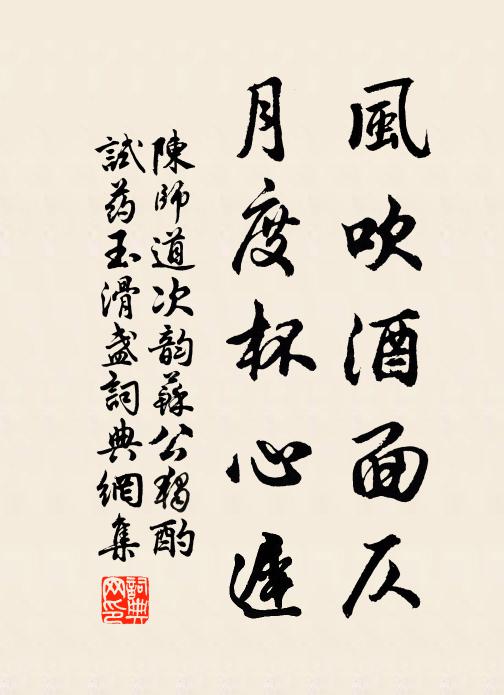 風吹酒面仄
月度杯心遲
陳師道次韵蘇公獨酌
試药玉滑盞詞典網集
詞典
网印